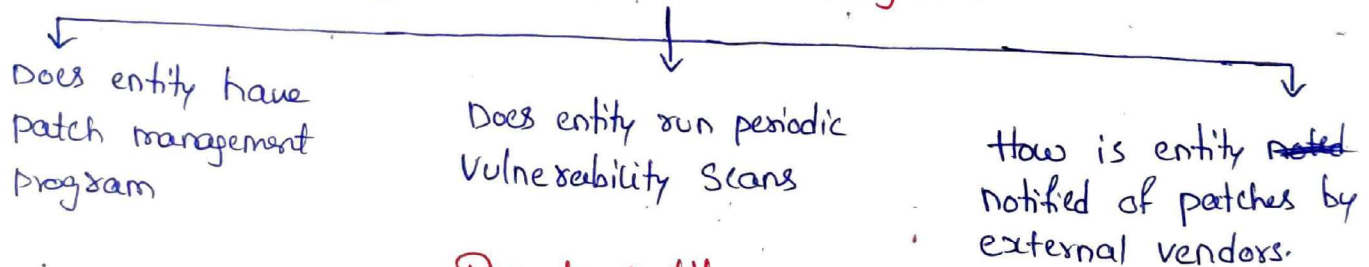 Does entity have
patch management
program
Does entity run periodic
Vulnerability Scans
How is entity noted
notified of patches by
external vendors.